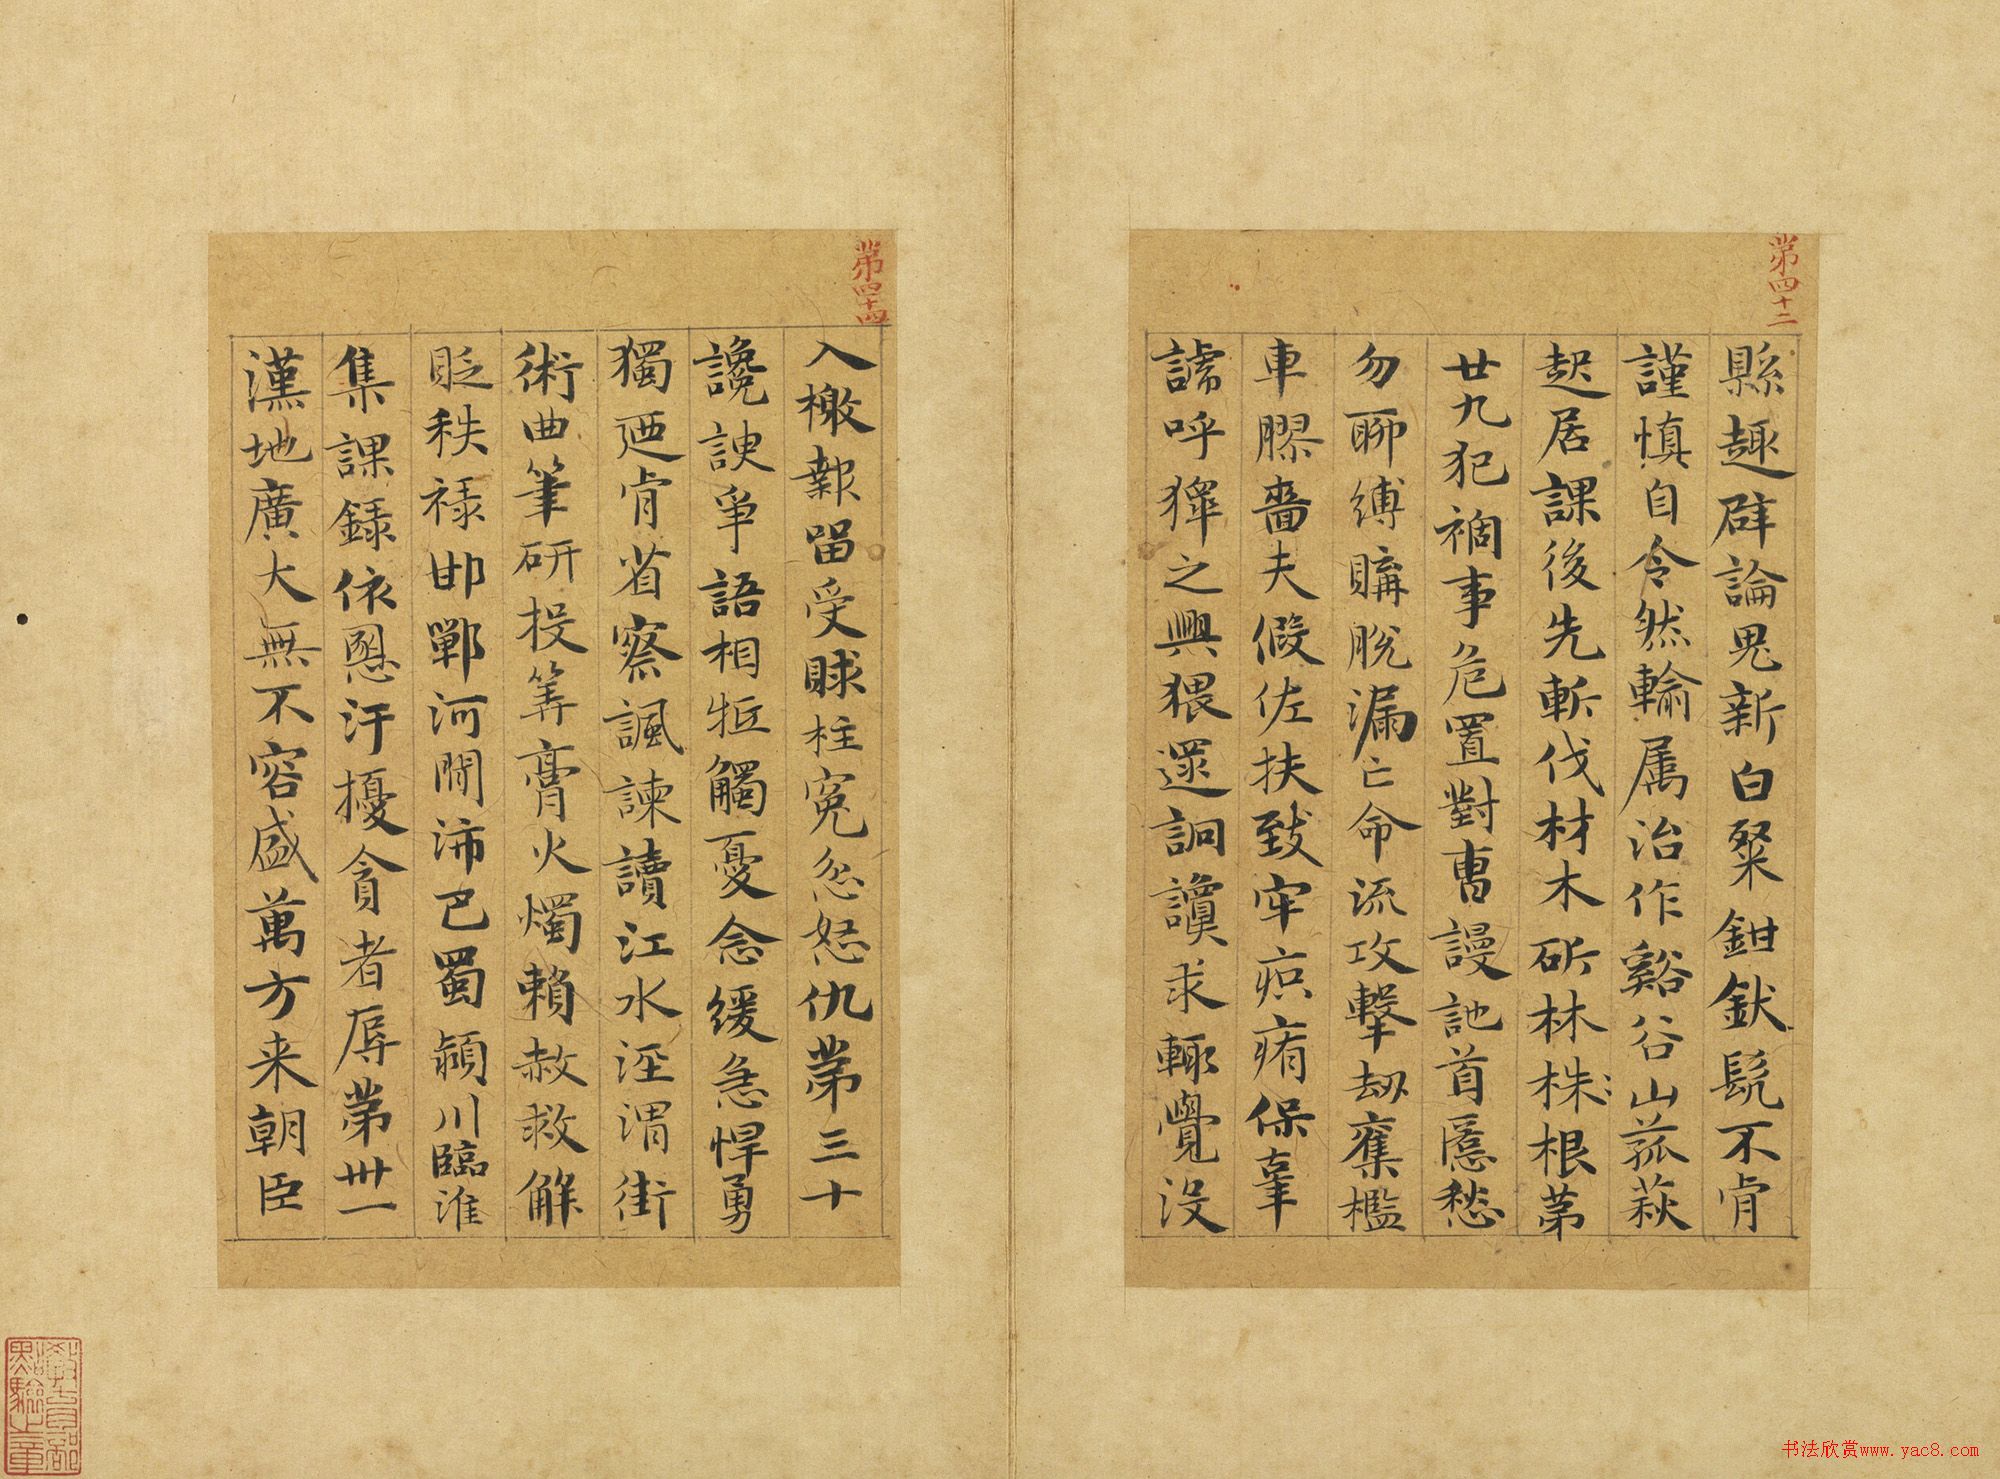 第四十二
縣趣辟論鬼新白粲鉗釱髡不肯
謹慎自令然輸属治作谿谷山菰萩
起居課後先斬伐材木斫林株根苐
廿九犯禍事危置對曹謾訑首匿愁
勿聊縛購脫漏亡命流攻擊劫奪檻
車膠嗇夫假佐扶致牢疻痏保辜
謼呼之興猥逯詗讂求輒覺没
第四十四
入檄報留受賕柱冤忿怒仇苐三十
讒諛爭語相牴觸憂念緩急悍勇
獨廼肯省察諷諫讀江水涇渭街
術曲筆研投筭膏火燭賴赦救解
貶秩禄邯鄲河間沛巴蜀潁川臨淮
集課録依恩汙擾貪者辱苐卅一
漢地廣大無不容盛萬方来朝臣
教育部點驗之章
书法欣赏www.yac8.com